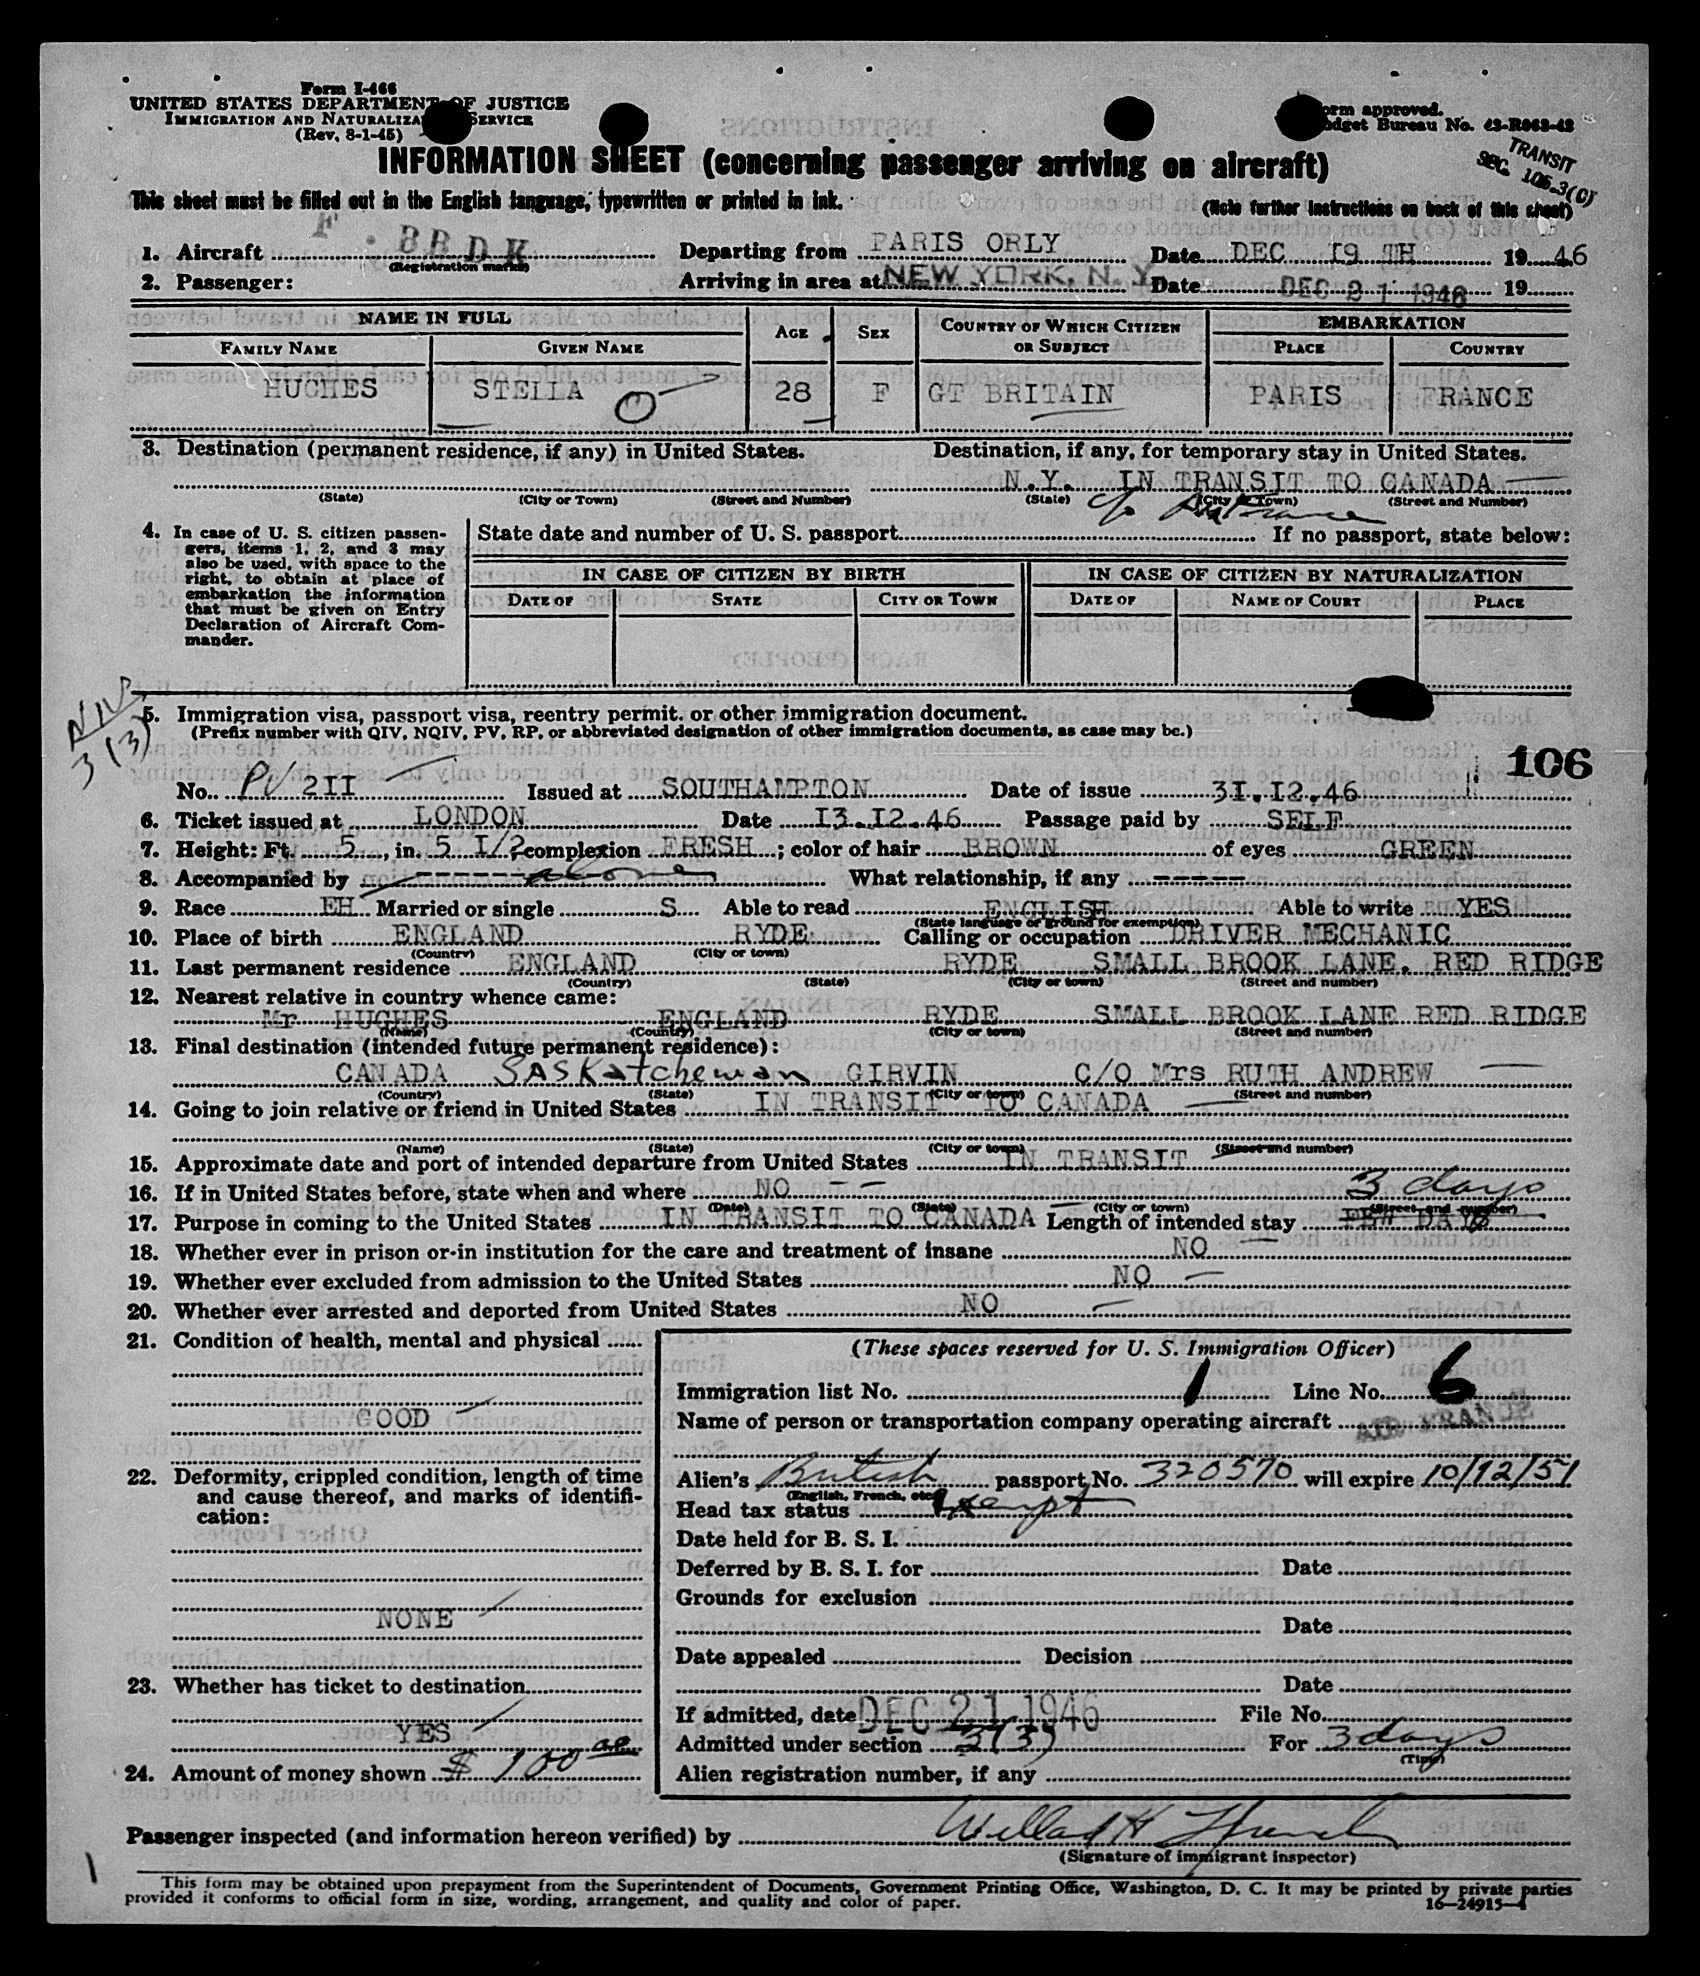 Form I-466
UNITED STATES DEPARTMENT OF JUSTICE
IMMIGRATION AND NATURALIZATION SERVICE
(Rev. 8-1-45)
Form approved.
Budget Bureau No. 43-R063-42
TRANSIT
SEC. 106-3(C)
INFORMATION SHEET (concerning passenger arriving on aircraft)
This sheet must be filled out in the English language, typewritten or printed in ink.
(Note further instructions on back of this sheet)
1. Aircraft F. BBDK Departing from PARIS ORLY Date DEC 19 TH 1946
(Registration marks)
2. Passenger: Arriving in area at NEW YORK, N. Y. Date DEC 21 1946 19
NAME IN FULL AGE SEX COUNTRY OF WHICH CITIZEN OR SUBJECT EMBARKATION
FAMILY NAME GIVEN NAME PLACE COUNTRY
HUGHES STELLA O 28 F GT BRITAIN PARIS FRANCE
3. Destination (permanent residence, if any) in United States. Destination, if any, for temporary stay in United States.
N.Y. IN TRANSIT TO CANADA
(State) (City or Town) (Street and Number) (State) (City or Town) (Street and Number)
c/o Air France
4. In case of U. S. citizen passengers, items 1, 2, and 3 may also be used, with space to the right, to obtain at place of embarkation the information that must be given on Entry Declaration of Aircraft Commander.
State date and number of U. S. passport If no passport, state below:
IN CASE OF CITIZEN BY BIRTH IN CASE OF CITIZEN BY NATURALIZATION
DATE OF STATE CITY OR TOWN DATE OF NAME OF COURT PLACE
NIV
3(3)
5. Immigration visa, passport visa, reentry permit, or other immigration document.
(Prefix number with QIV, NQIV, PV, RP, or abbreviated designation of other immigration documents, as case may be.)
106
No. PV 2II Issued at SOUTHAMPTON Date of issue 3I.I2.46
6. Ticket issued at LONDON Date I3.I2.46 Passage paid by SELF
7. Height: Ft. 5, in. 5 I/2; complexion FRESH; color of hair BROWN of eyes GREEN
8. Accompanied by ----- alone What relationship, if any -----
9. Race EH Married or single S Able to read ENGLISH Able to write YES
(State language or ground for exemption)
10. Place of birth ENGLAND RYDE Calling or occupation DRIVER MECHANIC
(Country) (City or town)
11. Last permanent residence ENGLAND RYDE SMALL BROOK LANE. RED RIDGE
(Country) (State) (City or town) (Street and number)
12. Nearest relative in country whence came:
Mr HUGHES ENGLAND RYDE SMALL BROOK LANE RED RIDGE
(Name) (Country) (City or town) (Street and number)
13. Final destination (intended future permanent residence):
CANADA SASKatchewan GIRVIN C/O Mrs RUTH ANDREW
(Country) (State) (City or town) (Street and number)
14. Going to join relative or friend in United States IN TRANSIT TO CANADA
(Name) (State) (City or town) (Street and number)
15. Approximate date and port of intended departure from United States IN TRANSIT
16. If in United States before, state when and where NO -- 3 days
(Date) (State) (City or town) (Street and number)
17. Purpose in coming to the United States IN TRANSIT TO CANADA Length of intended stay FEW DAYS
18. Whether ever in prison or in institution for the care and treatment of insane NO
19. Whether ever excluded from admission to the United States NO
20. Whether ever arrested and deported from United States NO
21. Condition of health, mental and physical
GOOD
22. Deformity, crippled condition, length of time and cause thereof, and marks of identification:
NONE
23. Whether has ticket to destination
YES
24. Amount of money shown $ 100 00
(These spaces reserved for U. S. Immigration Officer)
Immigration list No. 1 Line No. 6
Name of person or transportation company operating aircraft AIR FRANCE
Alien's British passport No. 320570 will expire 10/12/51
(English, French, etc.)
Head tax status Exempt
Date held for B. S. I.
Deferred by B. S. I. for Date
Grounds for exclusion
Date
Date appealed Decision
Date
If admitted, date DEC 21 1946 File No.
Admitted under section 3(3) For 3 days
(Time)
Alien registration number, if any
Passenger inspected (and information hereon verified) by
(Signature of immigrant inspector)
1
This form may be obtained upon prepayment from the Superintendent of Documents, Government Printing Office, Washington, D. C. It may be printed by private parties
provided it conforms to official form in size, wording, arrangement, and quality and color of paper.
16-24915-1